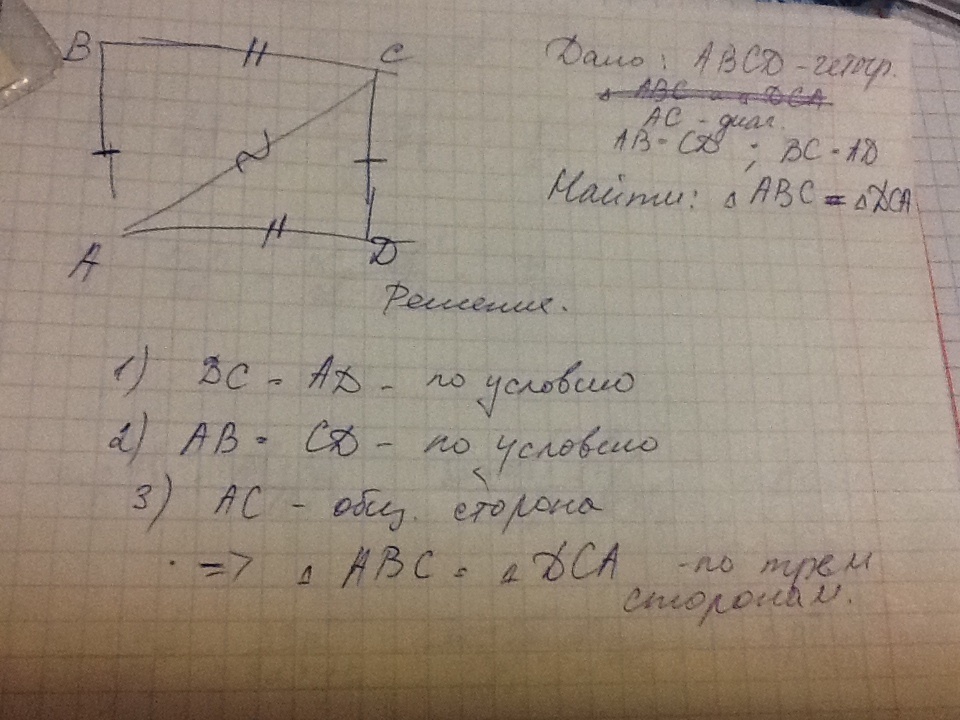 B
C
A
D
Дано: ABCD - четыр.
△ ABC и △ DCA
AC - диаг.
AB = CD ; BC = AD
Найти: △ ABC = △ DCA
Решение.
1) BC = AD - по условию
2) AB = CD - по условию
3) AC - общ. сторона
=> △ ABC = △ DCA - по трем
сторонам.